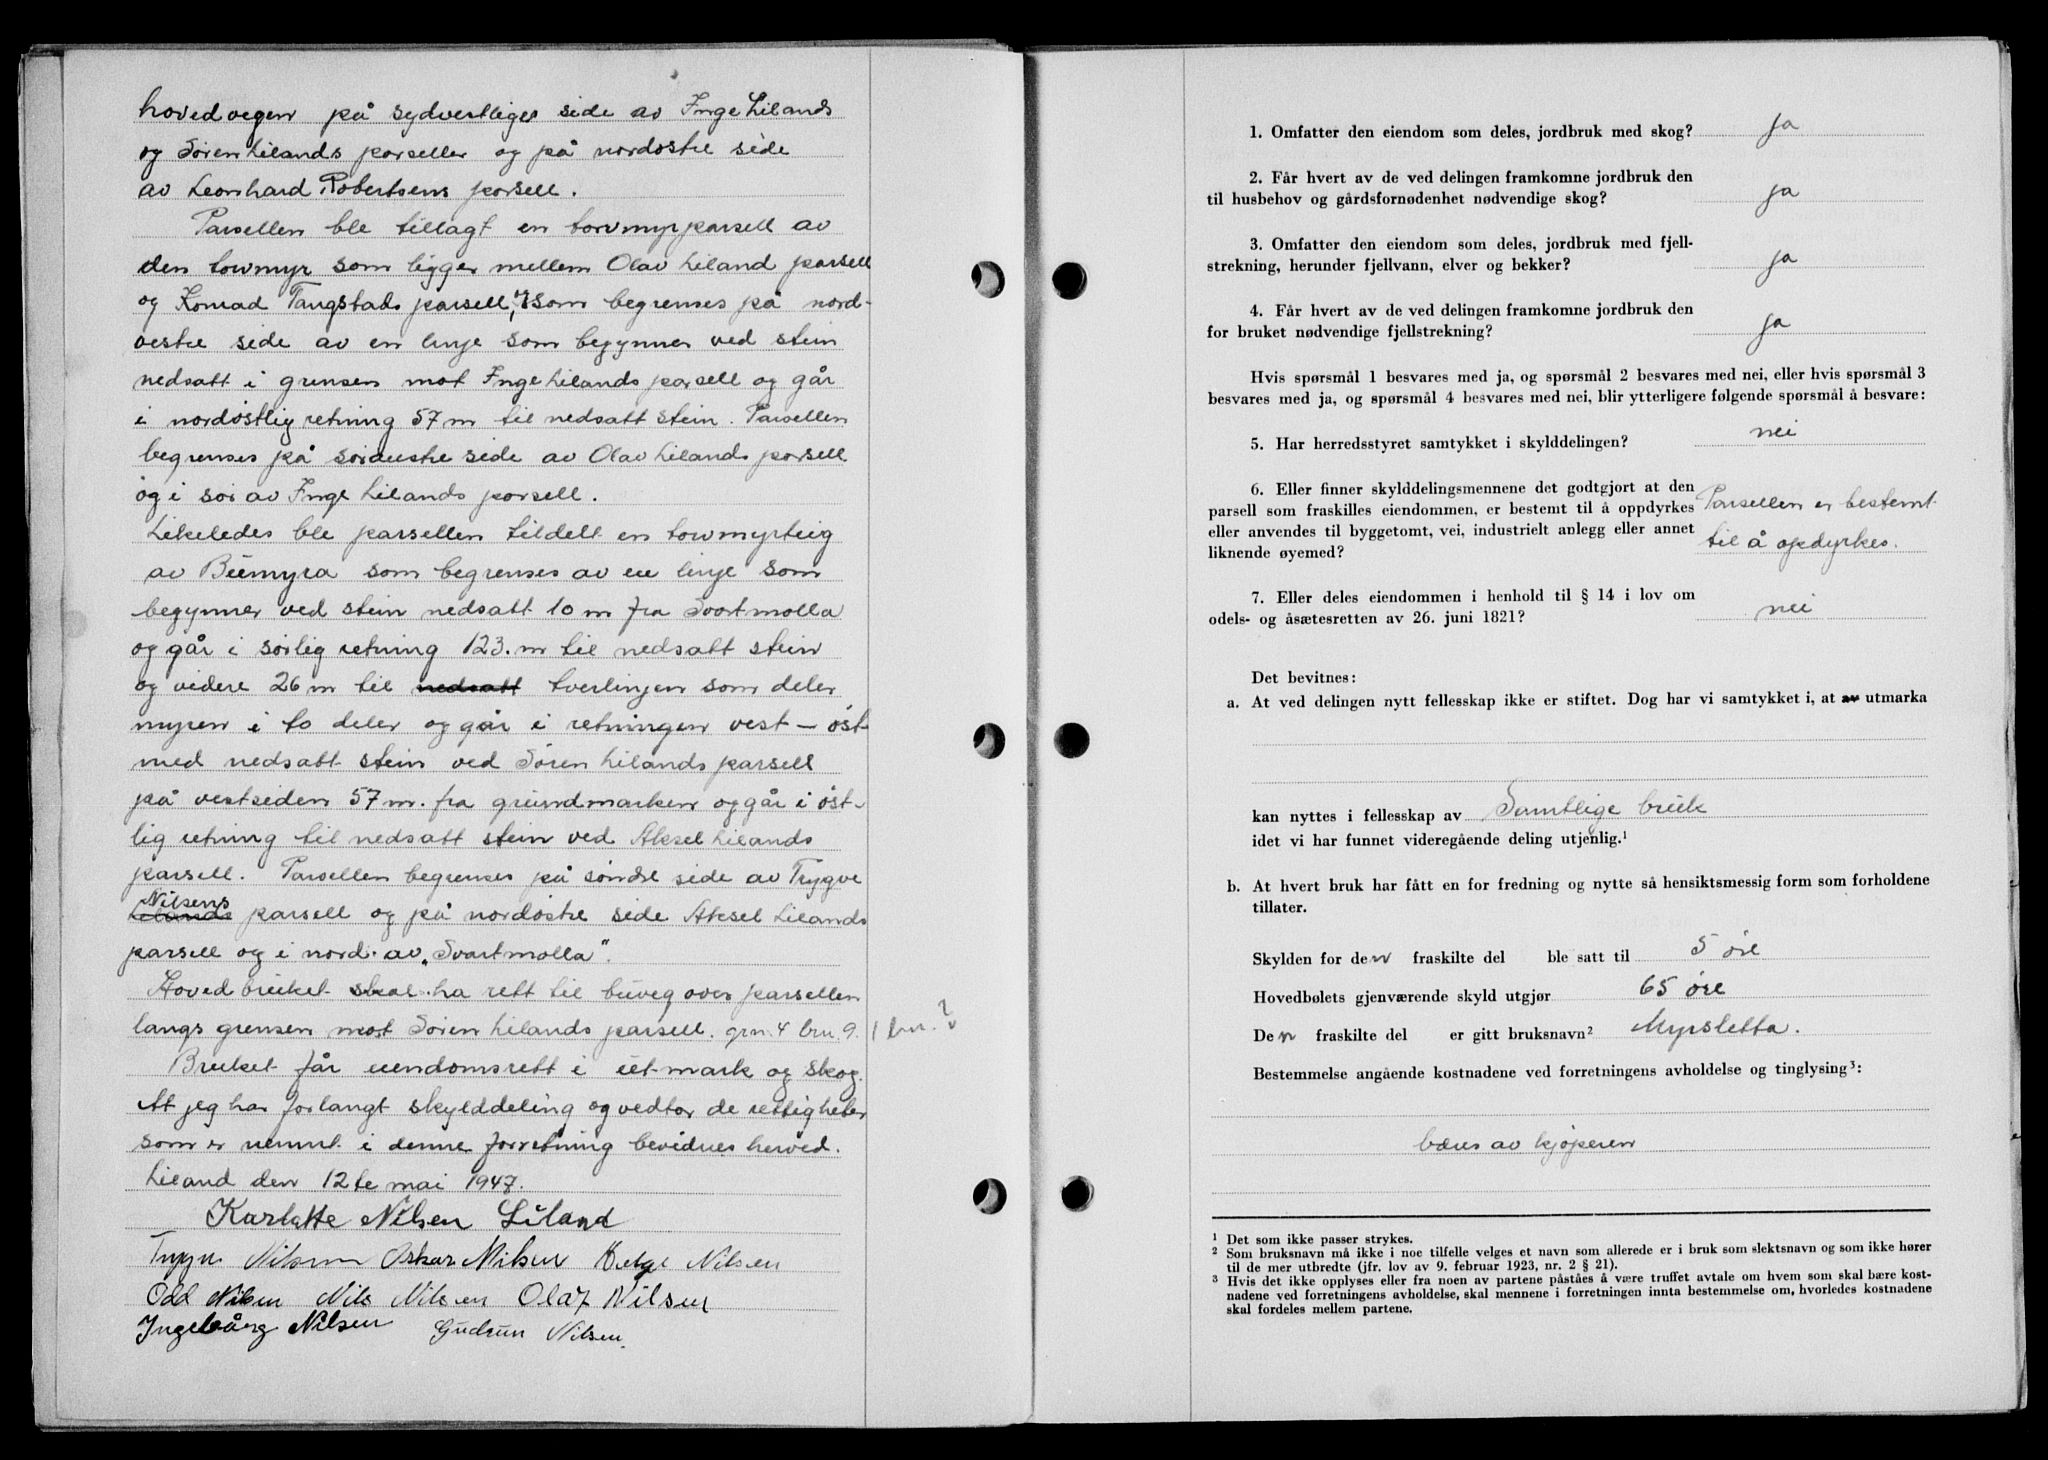 hovedvegen på sydvestlige side av Inge Lilands
og Søren Lilands parseller og på nordøstre side
av Leonhard Robertsens parsell.
Parsellen ble tillagt en torvmyrparsell av
den torvmyr som ligger mellem Olav Liland parsell
og Konrad Tangstads parsell, som begrenses på nord-
vestre side av en linje som begynner ved stein
nedsatt i grensen mot Inge Lilands parsell og går
i nordøstlig retning 57 m til nedsatt stein. Parsellen
begrenses på sørøstre side av Olav Lilands parsell
og i sør av Inge Lilands parsell.
Likeledes ble parsellen tildelt en torvmyrteig
av Buemyra som begrenses av en linje som
begynner ved stein nedsatt 10 m fra Svartmolla
og går i sørlig retning 123. m til nedsatt stein
og videre 26 m til nedsatt tverlinjen som deler
myren i to deler og går i retningen vest – øst
med nedsatt stein ved Søren Lilands parsell
på vestsiden 57 m. fra grunnmarken og går i øst-
lig retning til nedsatt stein ved Aksel Lilands
parsell. Parsellen begrenses på søndre side av Trygve
Nilsens
Lilands parsell og på nordøstre side Aksel Lilands
parsell og i nord av „Svartmolla".
Hovedbruket skal ha rett til buveg over parsellen
langs grensen mot Søren Lilands parsell. grn. 4 brn. 9. / brn. ?
Bruket får eiendomsrett i utmark og skog.
At jeg har forlangt skylddeling og vedtar de rettigheter
som er nevnt i denne forretning bevidnes herved.
Liland den 12te mai 1947.
Karlotte Nilsen Liland
Trygve Nilsen Oskar Nilsen Helge Nilsen
Odd Nilsen Nils Nilsen Olaf Nilsen
Ingebårg Nilsen Gudrun Nilsen.
1. Omfatter den eiendom som deles, jordbruk med skog? ja
2. Får hvert av de ved delingen framkomne jordbruk den
til husbehov og gårdsfornødenhet nødvendige skog? ja
3. Omfatter den eiendom som deles, jordbruk med fjell-
strekning, herunder fjellvann, elver og bekker? ja
4. Får hvert av de ved delingen framkomne jordbruk den
for bruket nødvendige fjellstrekning? ja
Hvis spørsmål 1 besvares med ja, og spørsmål 2 besvares med nei, eller hvis spørsmål 3
besvares med ja, og spørsmål 4 besvares med nei, blir ytterligere følgende spørsmål å besvare:
5. Har herredsstyret samtykket i skylddelingen? nei
6. Eller finner skylddelingsmennene det godtgjort at den
parsell som fraskilles eiendommen, er bestemt til å oppdyrkes Parsellen er bestemt
eller anvendes til byggetomt, vei, industrielt anlegg eller annet
liknende øyemed? til å opdyrkes.
7. Eller deles eiendommen i henhold til § 14 i lov om
odels- og åsætesretten av 26. juni 1821? nei
Det bevitnes:
a. At ved delingen nytt fellesskap ikke er stiftet. Dog har vi samtykket i, at av utmarka
kan nyttes i fellesskap av Samtlige bruk
idet vi har funnet videregående deling utjenlig.¹
b. At hvert bruk har fått en for fredning og nytte så hensiktsmessig form som forholdene
tillater.
Skylden for den fraskilte del ble satt til 5 øre
Hovedbølets gjenværende skyld utgjør 65 øre
Den fraskilte del er gitt bruksnavn² Myrsletta.
Bestemmelse angående kostnadene ved forretningens avholdelse og tinglysing³:
bæres av kjøperen
¹ Det som ikke passer strykes.
² Som bruksnavn må ikke i noe tilfelle velges et navn som allerede er i bruk som slektsnavn og som ikke hører
til de mer utbredte (jfr. lov av 9. februar 1923, nr. 2 § 21).
³ Hvis det ikke opplyses eller fra noen av partene påståes å være truffet avtale om hvem som skal bære kost-
nadene ved forretningens avholdelse, skal mennene i forretningen innta bestemmelse om, hvorledes kostnadene
skal fordeles mellem partene.